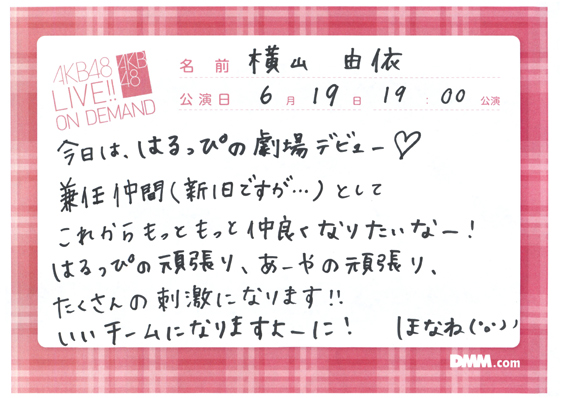 AKB48
LIVE!!
ON DEMAND
AKB
48
名前 横山 由依
公演日 6月19日 19:00公演
今日は、はるっぴの劇場デビュー♡
兼任仲間(新旧ですが…)として
これからもっともっと仲良くなりたいなー!
はるっぴの頑張り、あーやの頑張り、
たくさんの刺激になります!!
いいチームになりますよーに! ほなね(°o°))
DMM.com